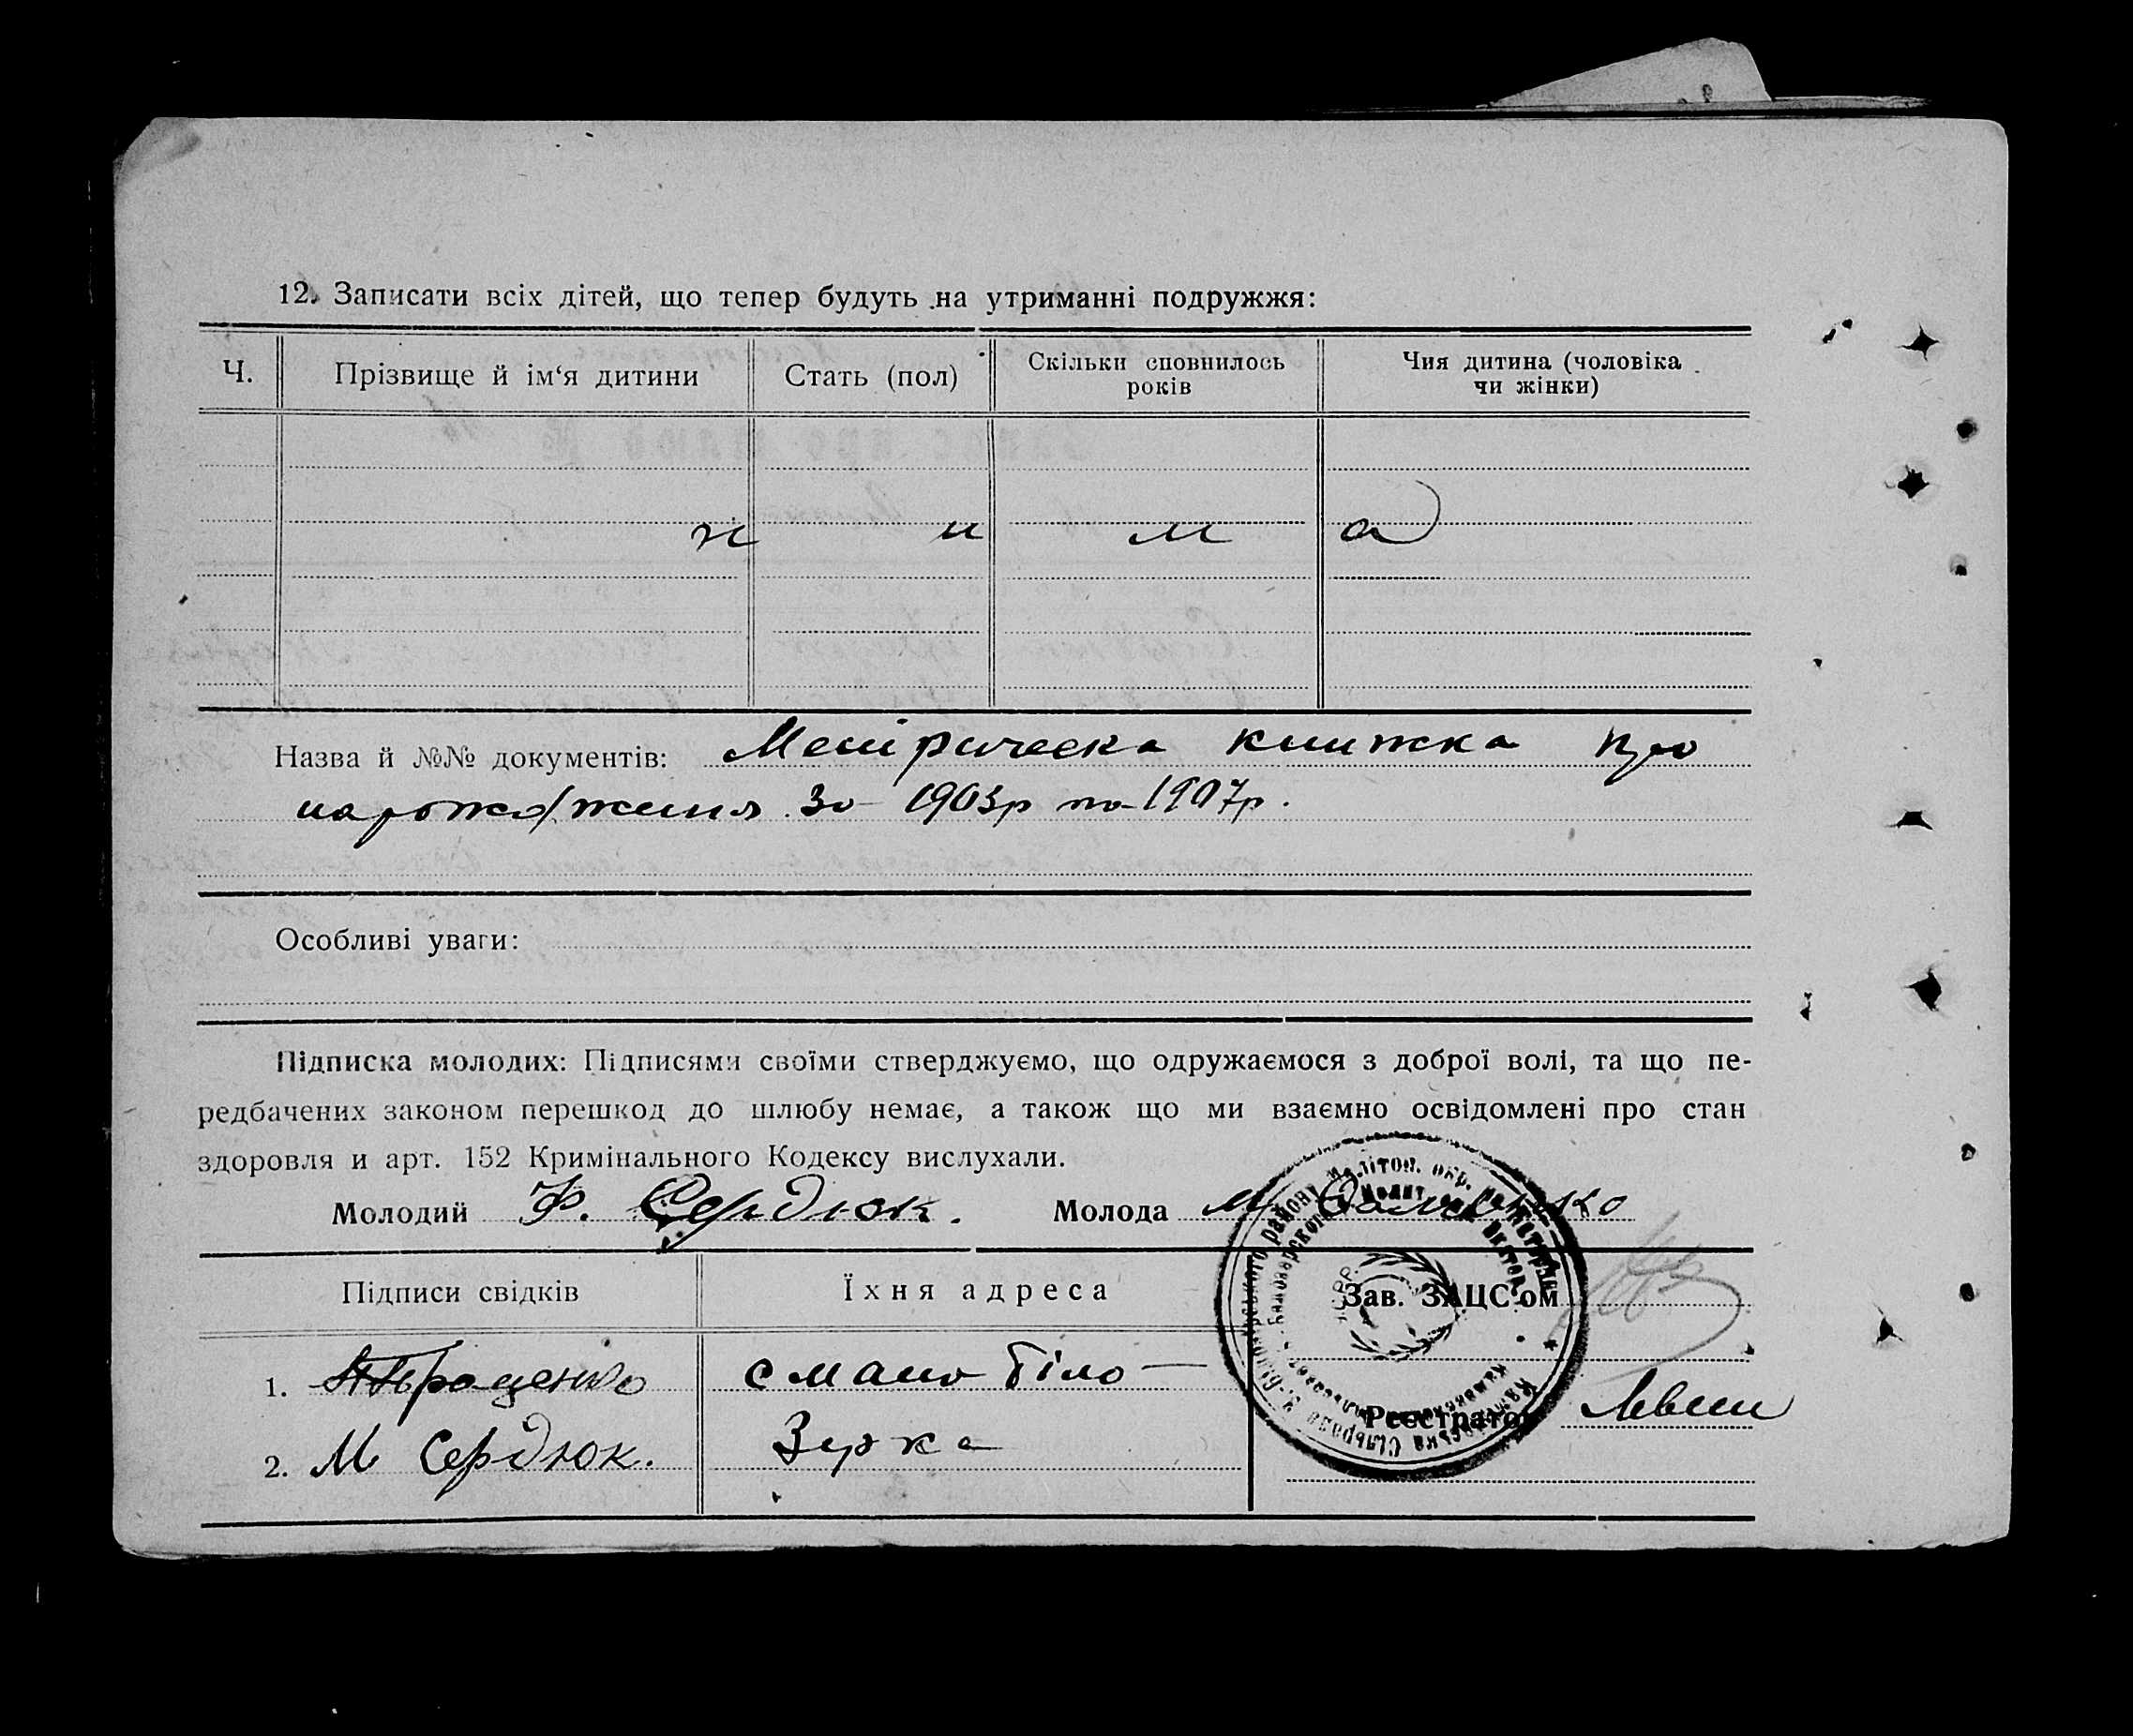 12. Записати всіх дітей, що тепер будуть на утриманні подружжя:
Ч.
Прізвище й ім‘я дитини
Стать (пол)
Скільки сповнилось
років
Чия дитина (чоловіка
чи жінки)
н и м а
Назва й №№ документів: Метрическа книжка про
нарождження за 1903р по 1907р.
Особливі уваги:
Підписка молодих: Підписями своїми стверджуємо, що одружаємося з доброї волі, та що пе-
редбачених законом перешкод до шлюбу немає, а також що ми взаємно освідомлені про стан
здоровля и арт. 152 Кримінального Кодексу вислухали.
Молодий Ф. Сердюк. Молода М.
Підписи свідків
Їхня адреса
Зав. ЗАЦС'ом
1.
с Мало Біло—
Реєстратор
2. М Сердюк.
Зирка